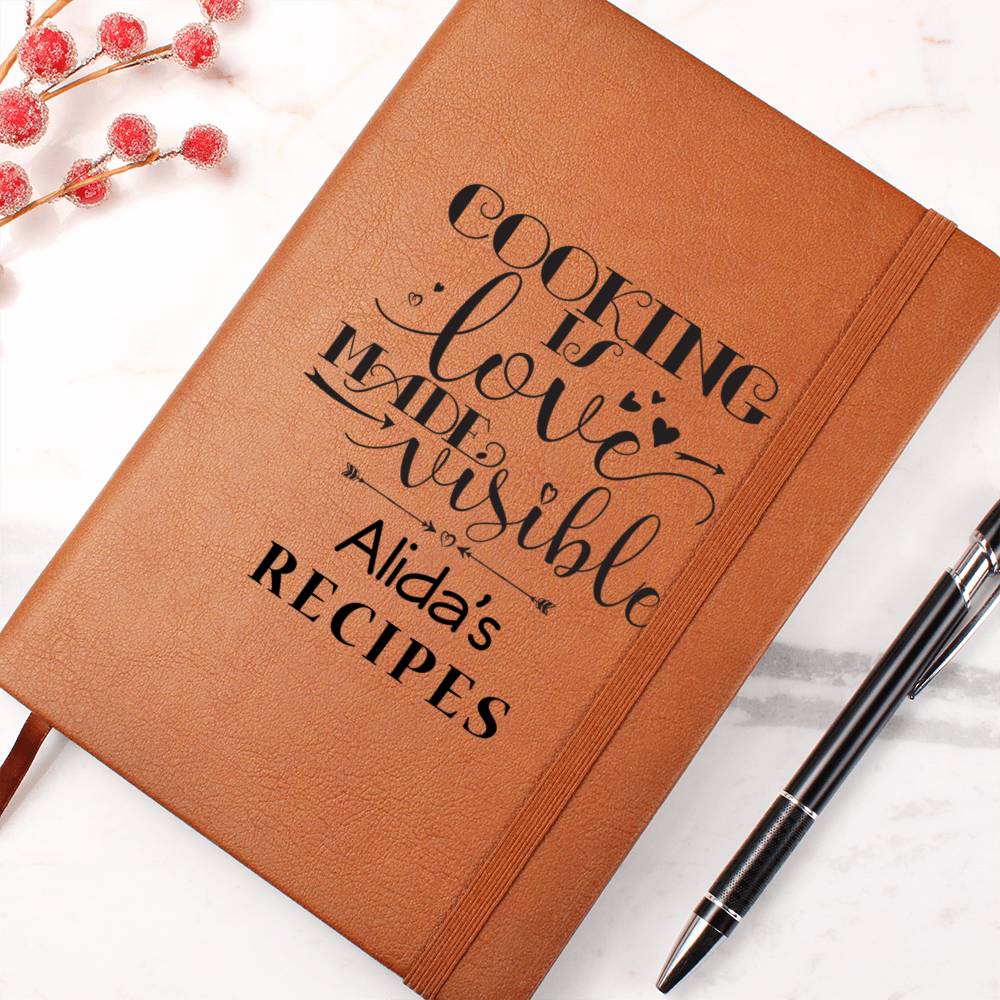 COOKING
IS
love
MADE
visible
Alida's
RECIPES